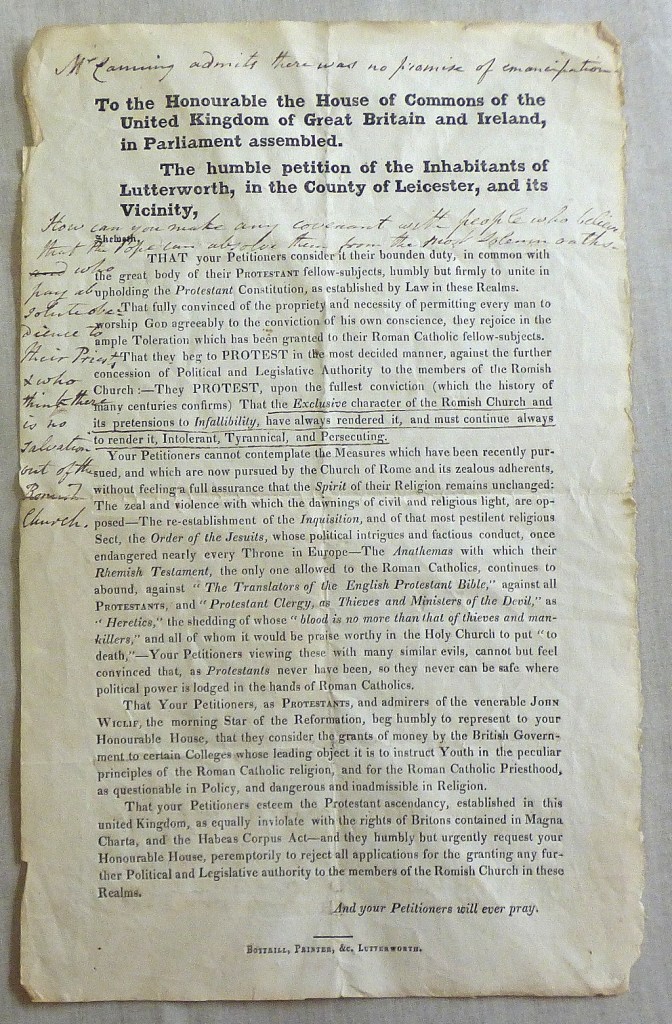 Mr Canning admits there was no promise of emancipation
To the Honourable the House of Commons of the
United Kingdom of Great Britain and Ireland,
in Parliament assembled.
The humble petition of the Inhabitants of
Lutterworth, in the County of Leicester, and its
Vicinity,
How can you make any covenant with people who believe
that the Pope can absolve them from the most solemn oaths
and who
pay ab
solute obe-
dience to
their Priest
& who
think there
is no
salvation
out of the
Romish
Church.
Sheweth,
THAT your Petitioners consider it their bounden duty, in common with
the great body of their PROTESTANT fellow-subjects, humbly but firmly to unite in
upholding the Protestant Constitution, as established by Law in these Realms.
That fully convinced of the propriety and necessity of permitting every man to
worship GOD agreeably to the conviction of his own conscience, they rejoice in the
ample Toleration which has been granted to their Roman Catholic fellow-subjects.
That they beg to PROTEST in the most decided manner, against the further
concession of Political and Legislative Authority to the members of the Romish
Church:—They PROTEST, upon the fullest conviction (which the history of
many centuries confirms) That the Exclusive character of the Romish Church and
its pretensions to Infallibility, have always rendered it, and must continue always
to render it, Intolerant, Tyrannical, and Persecuting.
Your Petitioners cannot contemplate the Measures which have been recently pur-
sued, and which are now pursued by the Church of Rome and its zealous adherents,
without feeling a full assurance that the Spirit of their Religion remains unchanged:
The zeal and violence with which the dawnings of civil and religious light, are op-
posed—The re-establishment of the Inquisition, and of that most pestilent religious
Sect, the Order of the Jesuits, whose political intrigues and factious conduct, once
endangered nearly every Throne in Europe—The Anathemas with which their
Rhemish Testament, the only one allowed to the Roman Catholics, continues to
abound, against "The Translators of the English Protestant Bible," against all
PROTESTANTS, and "Protestant Clergy, as Thieves and Ministers of the Devil," as
"Heretics," the shedding of whose "blood is no more than that of thieves and man-
killers," and all of whom it would be praise worthy in the Holy Church to put "to
death,"—Your Petitioners viewing these with many similar evils, cannot but feel
convinced that, as Protestants never have been, so they never can be safe where
political power is lodged in the hands of Roman Catholics.
That Your Petitioners, as PROTESTANTS, and admirers of the venerable JOHN
WICLIF, the morning Star of the Reformation, beg humbly to represent to your
Honourable House, that they consider the grants of money by the British Govern-
ment to certain Colleges whose leading object it is to instruct Youth in the peculiar
principles of the Roman Catholic religion, and for the Roman Catholic Priesthood,
as questionable in Policy, and dangerous and inadmissible in Religion.
That your Petitioners esteem the Protestant ascendancy, established in this
united Kingdom, as equally inviolate with the rights of Britons contained in Magna
Charta, and the Habeas Corpus Act—and they humbly but urgently request your
Honourable House, peremptorily to reject all applications for the granting any fur-
ther Political and Legislative authority to the members of the Romish Church in these
Realms.
And your Petitioners will ever pray.
BOTTRILL, PRINTER, &c. LUTTERWORTH.